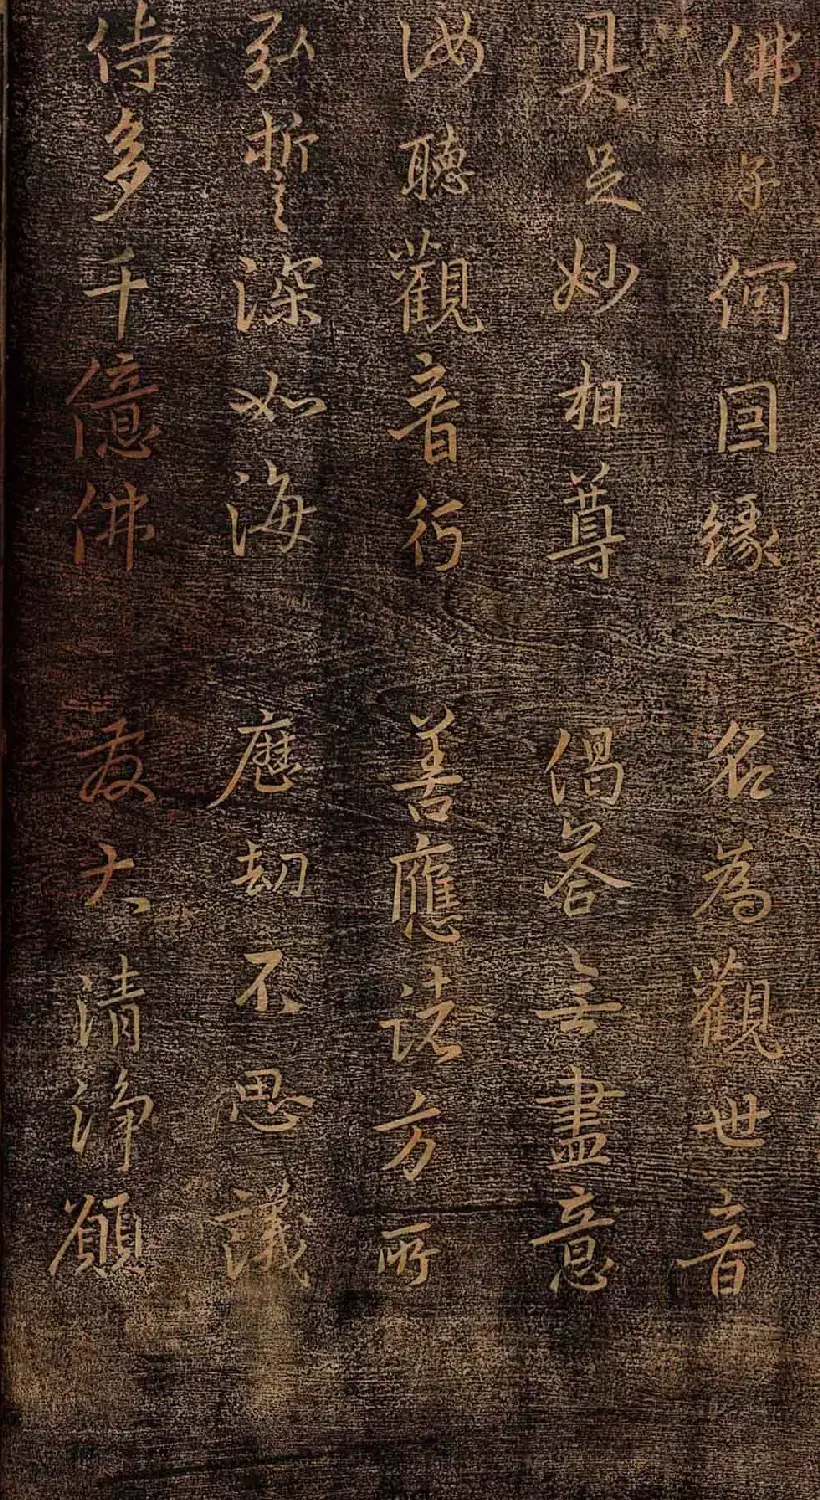 佛子何因緣　名為觀世音
具足妙相尊　偈答無盡意
汝聽觀音行　善應諸方所
弘誓深如海　歷劫不思議
侍多千億佛　發大清淨願